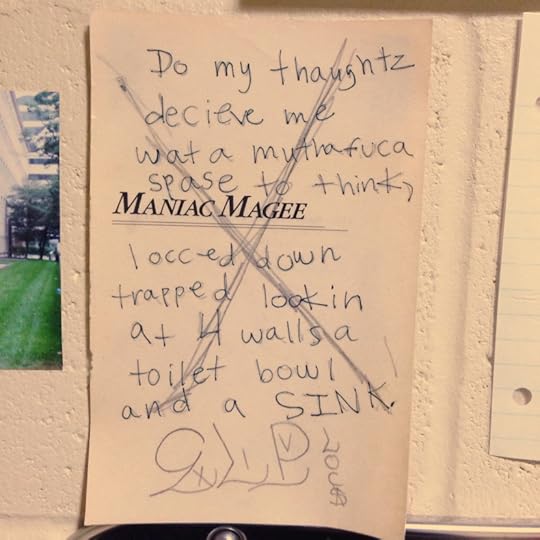 Do my thaughtz
decieve me
wat a muthafuca
spase to think,
MANIAC MAGEE
locced down
trapped lookin
at 4 walls a
toilet bowl
and a SINK.